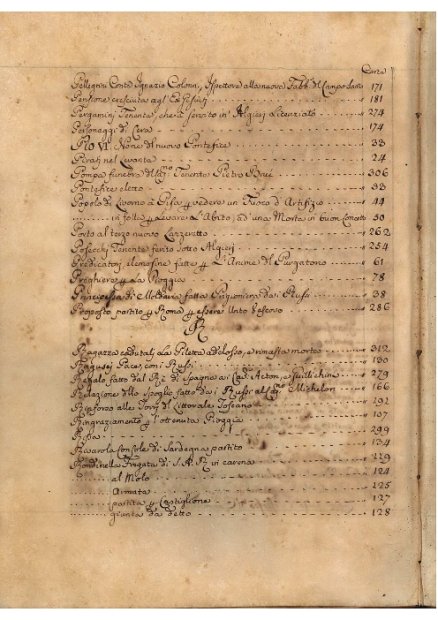 Carte
Pellegrini Conte Ignazio Colonii, Ispettore alla nuova Fabb. del Campo Santo 171
Pensione cresciuta agl' Ex Gesuiti 181
Pergamini Tenente, che à servito in Algieri Licenziato 274
Personaggi di Cera 174
PIO VI. Nome del nuovo Pontefice 33
Pirati nel Levante 24
Pompa funebre del Tenente Pietro Buci 306
Pontefice eletto 33
Popolo di Livorno a Pisa p vedere un Fuoco d'Artifizio 44
in folla p levare L'Abito, ad una Morta in buon concetto 50
Porto al terzo nuovo Lazzeretto 262
Tenente ferito sotto Algieri 254
Predicatori, elemosine fatte p L'Anime del Purgatorio 61
Preghiere p La Pioggia 78
Principessa di Moldavia fatta Prigioniera da i Russi 38
Proposto partito p Roma p essere Unto Vescovo 286
R
Ragazza cadutali La Pileta adolosso, e rimasta morta 312
Ragusei Pace con i Russi 130
Regalo fatto dal Rè di Spagna a i Cav. Acton, e 279
Relazione dello Spoglio fatto da i Russi al Cap. Michelon 166
Rinforzo alle Torri del Littorale Toscano 192
Ringraziamento p l'ottenuta Pioggia 107
Rissa 299
con Sole di Sardegna partito 154
Rondinella Fregata di S. A. R. in carena 229
al Molo 124
Armata 225
partita p Castiglione 127
giunta da detto 128